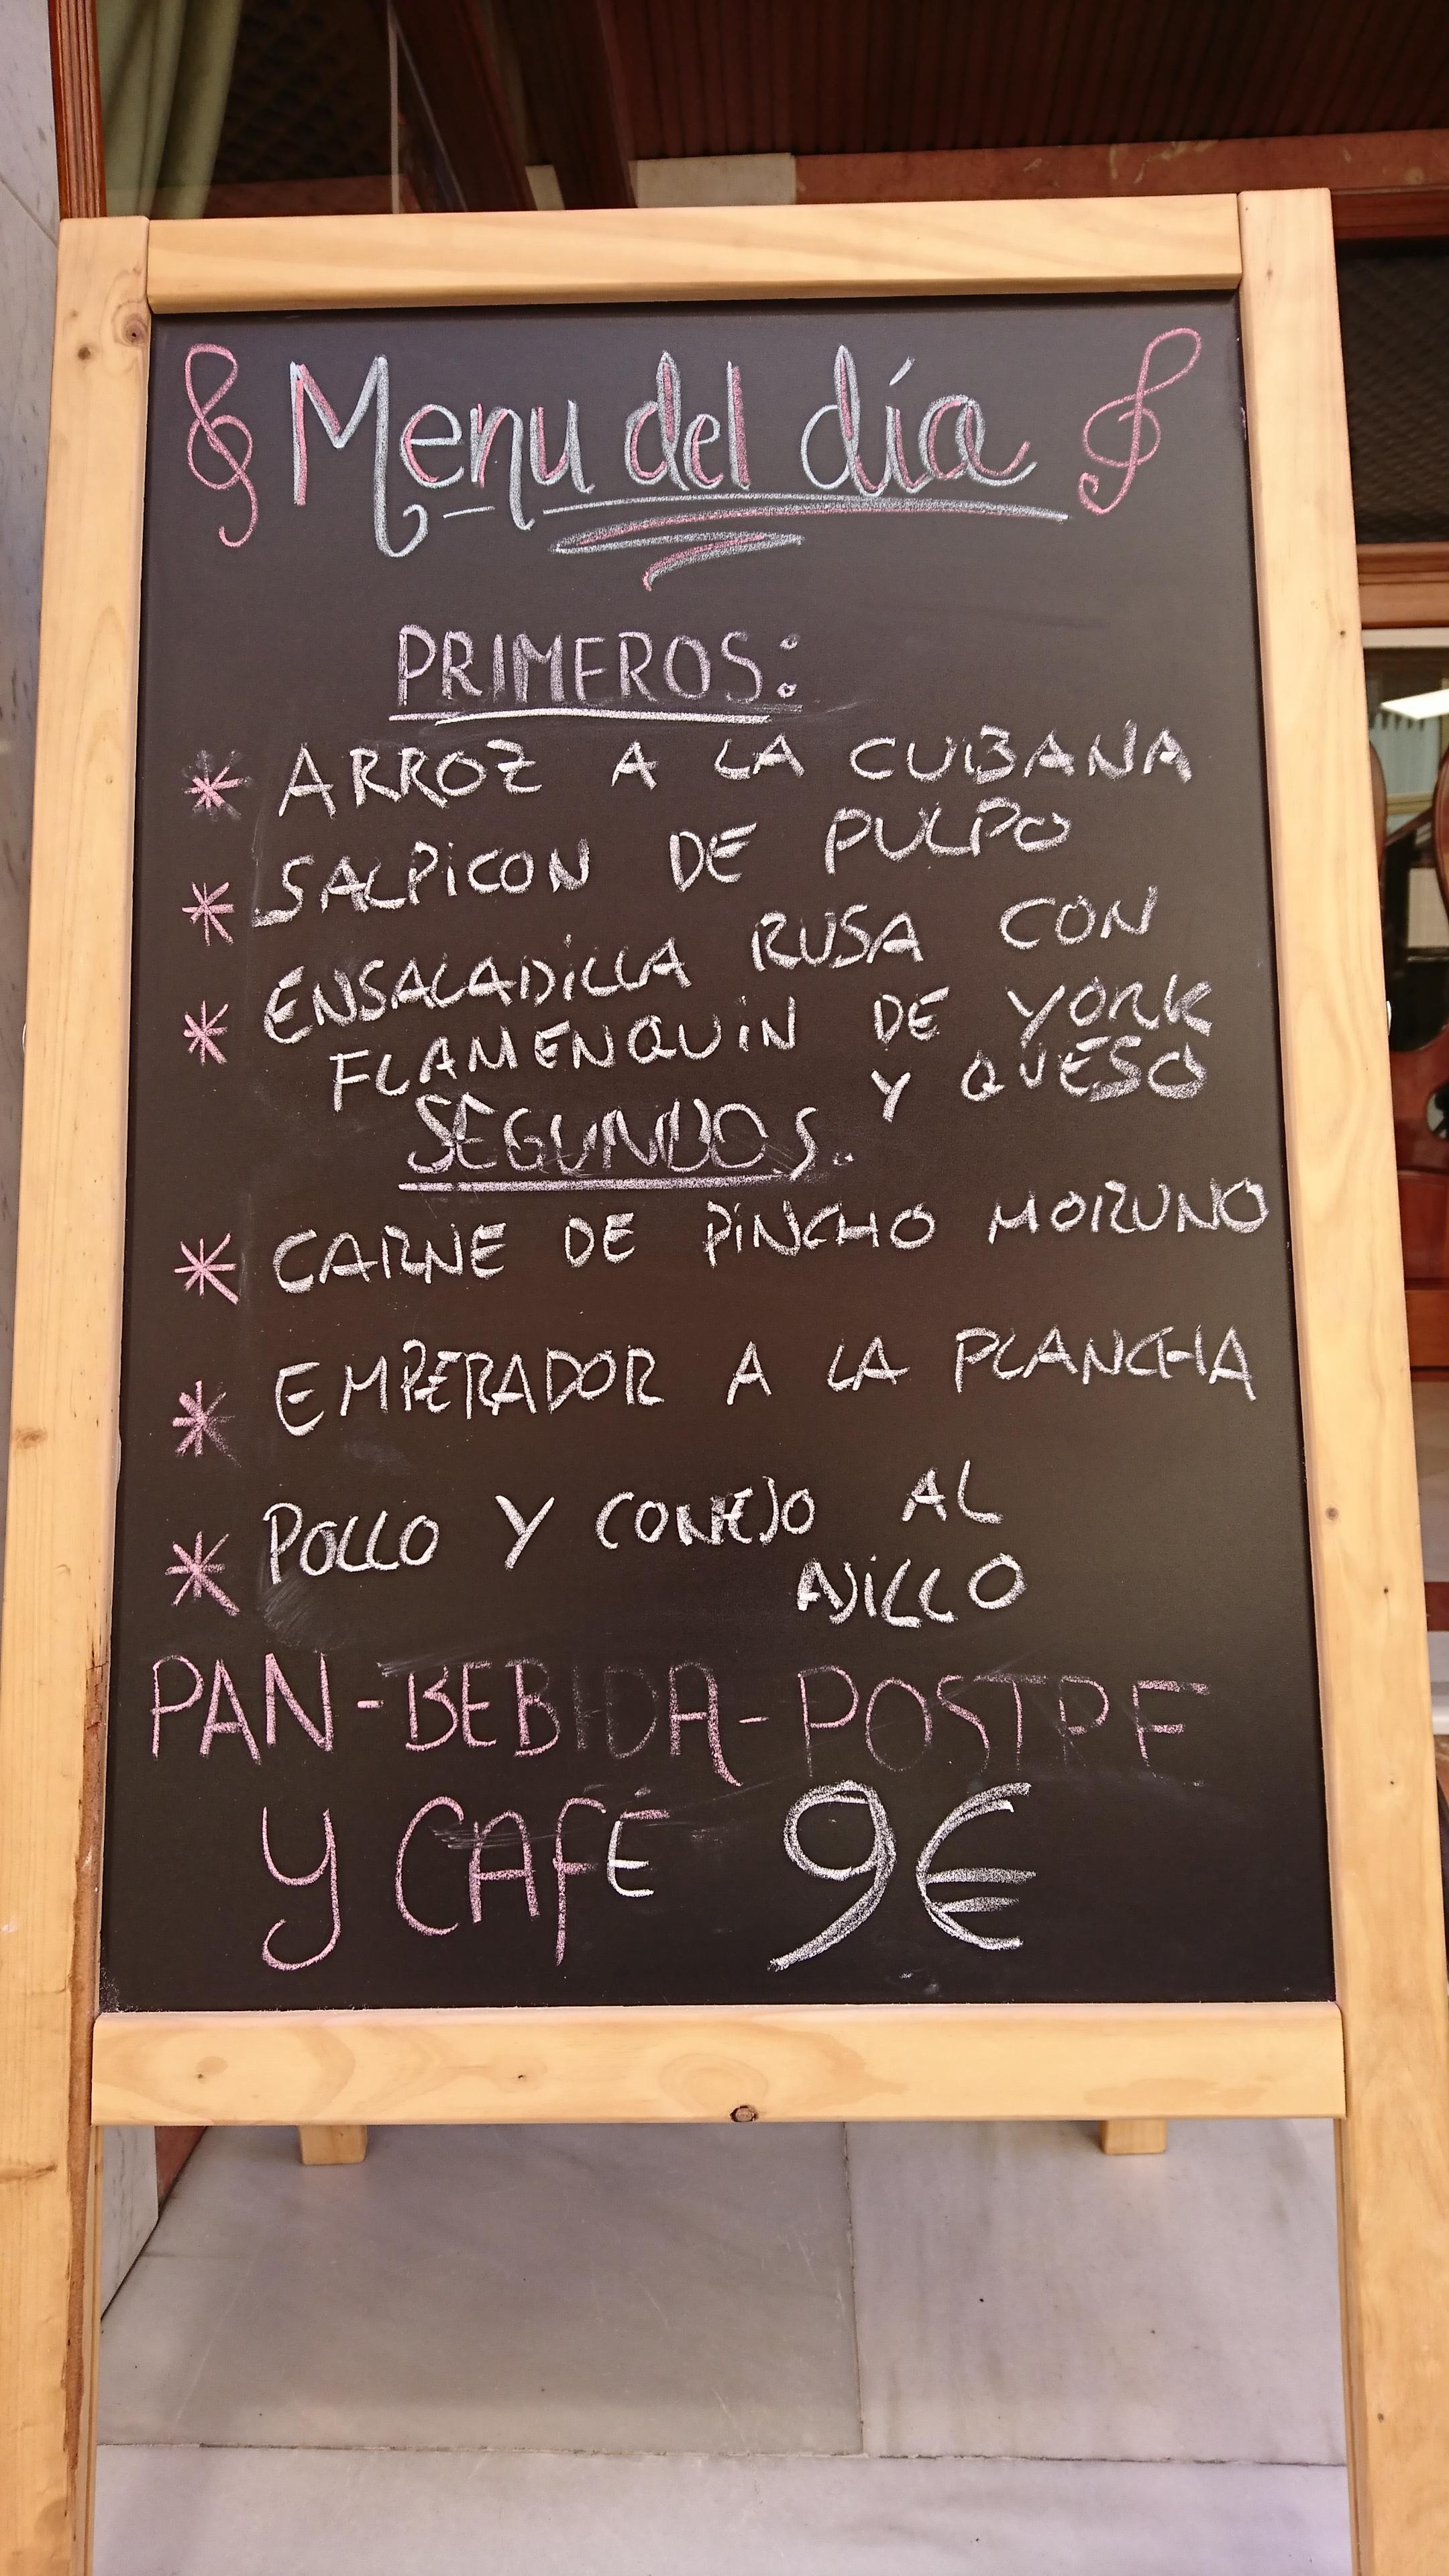 Menu del día
PRIMEROS:
* ARROZ A LA CUBANA
* SALPiCON DE PULPO
* ENSALADiLLA RUSA CON
FLAMENQUiN DE YORK
Y QUESO
SEGUNDOS.
* CARNE DE PiNCHO MORUNO
* EMPERADOR A LA PLANCHA
* POLLO Y CONEJO AL
AJiLLO
PAN-BEBIDA-POSTRE
Y CAFÉ 9€